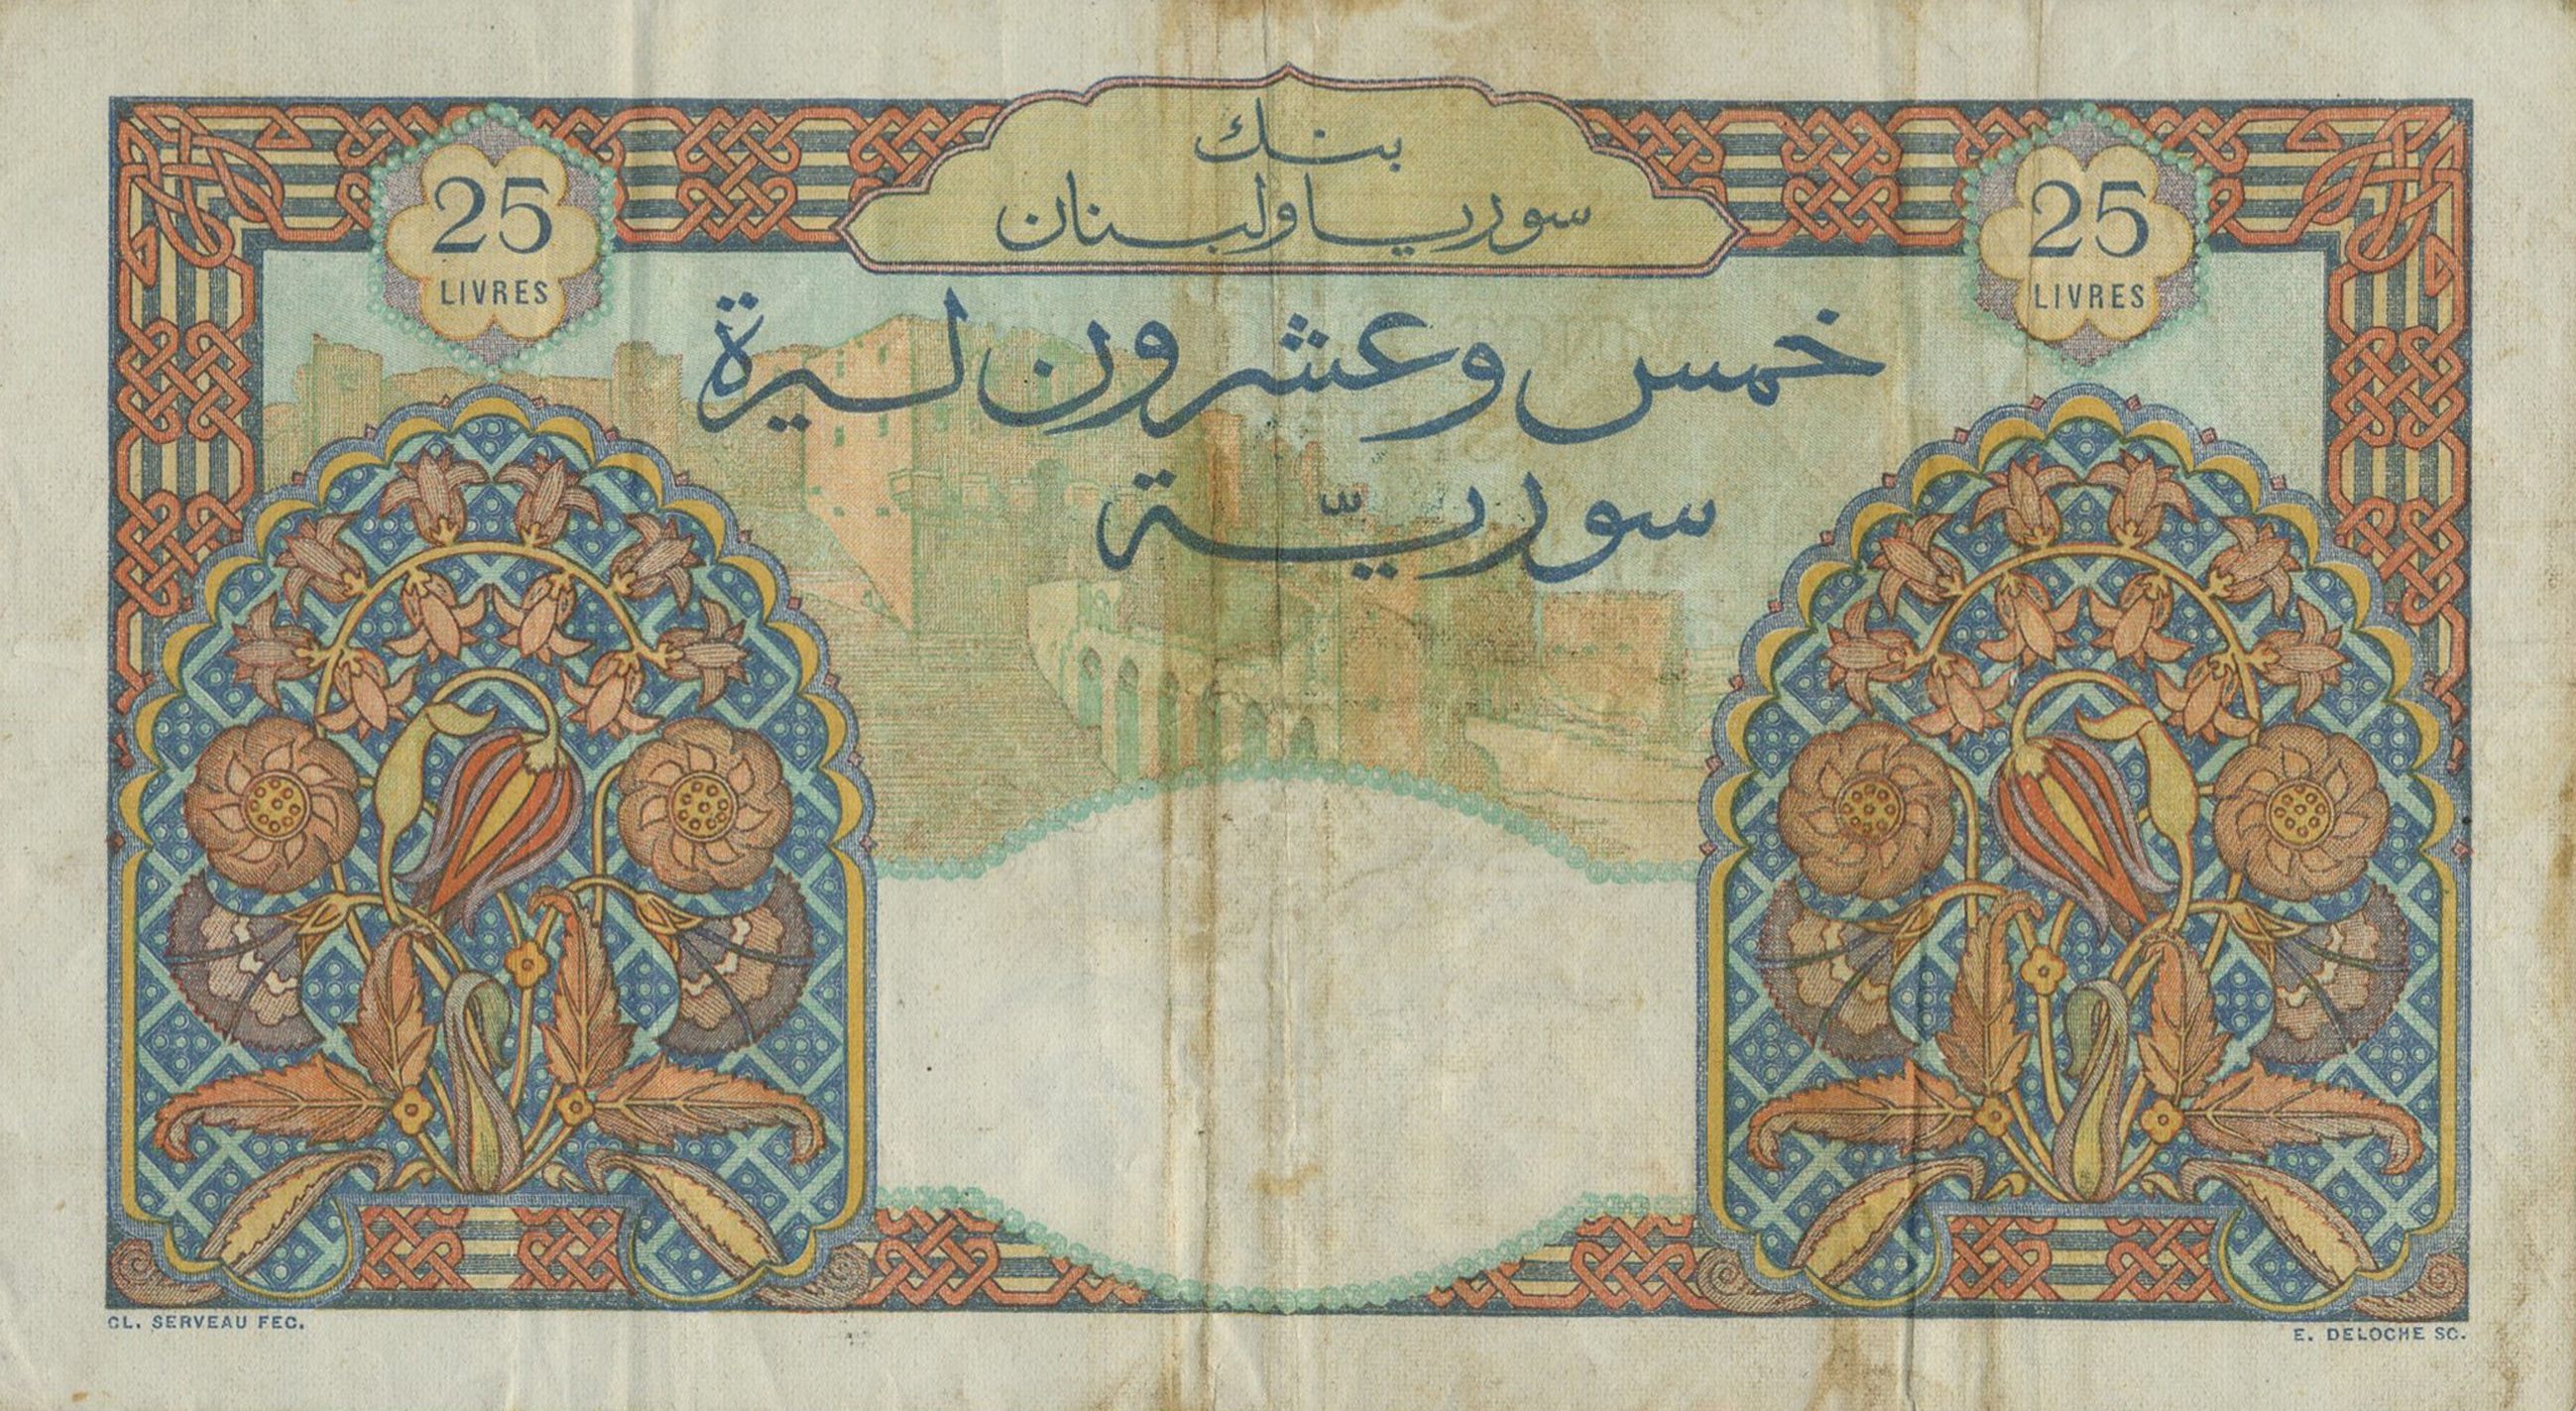 بنك
سوريا ولبنان
25
LIVRES
25
LIVRES
خمس وعشرون ليرة
سوريّة
CL. SERVEAU FEC.
E. DELOCHE SC.